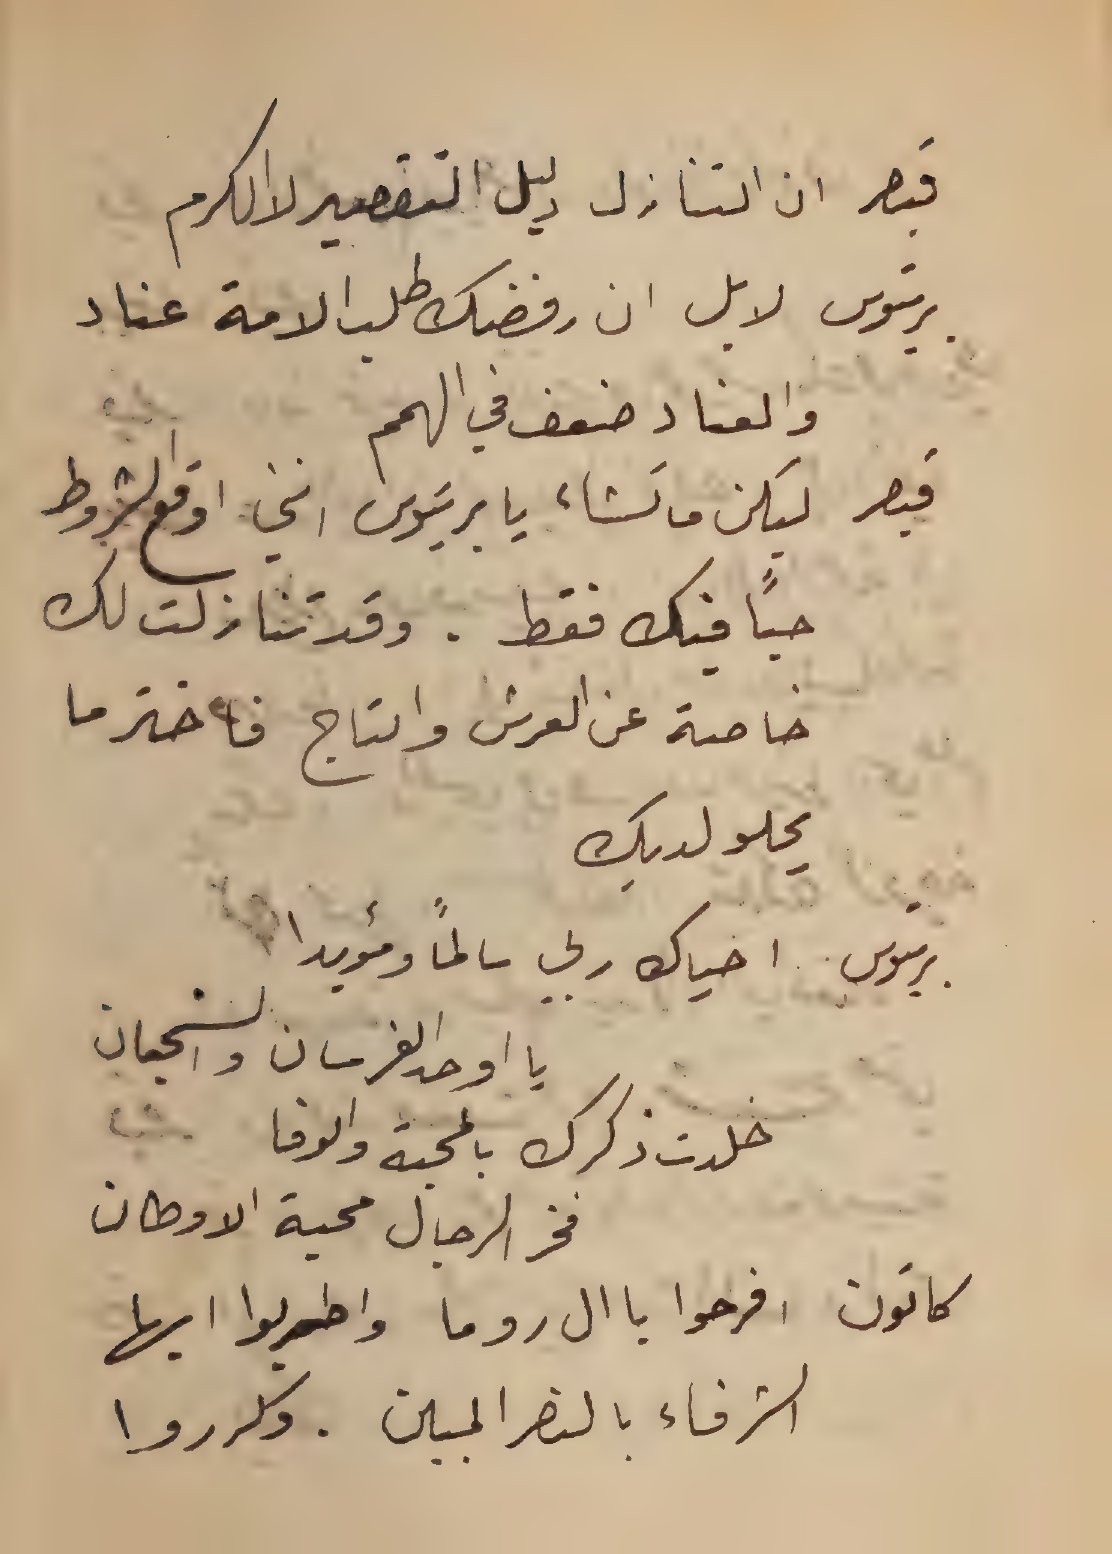 قيصر ان التنازل دليل التقصير لا الكرم
برتوس لا بل ان رفضك طلب الامة عناد
والعناد ضعف في الهمم
قيصر ليكن ما تشاء يا برتوس انني اوقع الشروط
حبًا فيك فقط . وقد تنازلت لك
خاصة عن العرش والتاج فاختر ما
يحلو لديك
برتوس احياك ربي سالمًا ومؤيدا
يا اوحد الفرسان والشجعان
خلدت ذكرك بالمحبة والوفا
فخر الرجال محبة الاوطان
كاتون افرحوا يا ال روما واطربوا ايها
الشرفاء بالنصر المبين . وكرروا